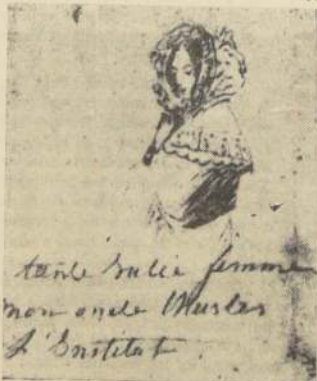 tante Julie femme
mon oncle Charles
l'Institut